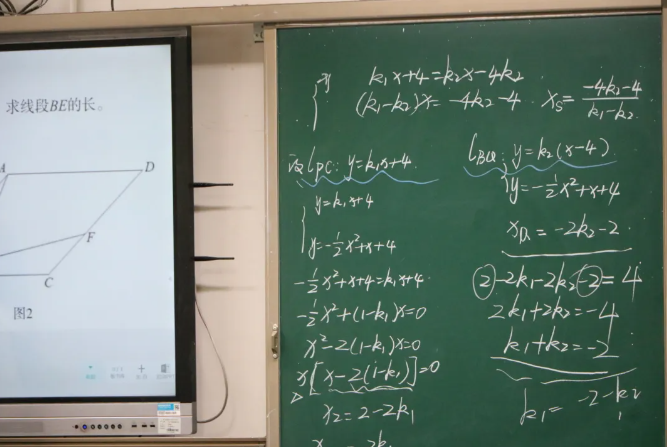 求线段BE的长。
A
D
F
C
图2
k₁x+4=k₂x-4k₂
(k₁-k₂)x=-4k₂-4
x_S=\frac{-4k_2-4}{k_1-k_2}
设l_{PC}: y=k₁x+4.
y=k₁x+4
y=-\frac{1}{2}x²+x+4
-\frac{1}{2}x²+x+4=k₁x+4.
-\frac{1}{2}x²+(1-k₁)x=0
x²-2(1-k₁)x=0
x[x-2(1-k₁)]=0
x₂=2-2k₁
l_{BQ}: y=k₂(x-4)
y=-\frac{1}{2}x²+x+4
x_Q=-2k₂-2
2-2k₁-2k₂-2=4
2k₁+2k₂=-4
k₁+k₂=-2
k₁=-2-k₂